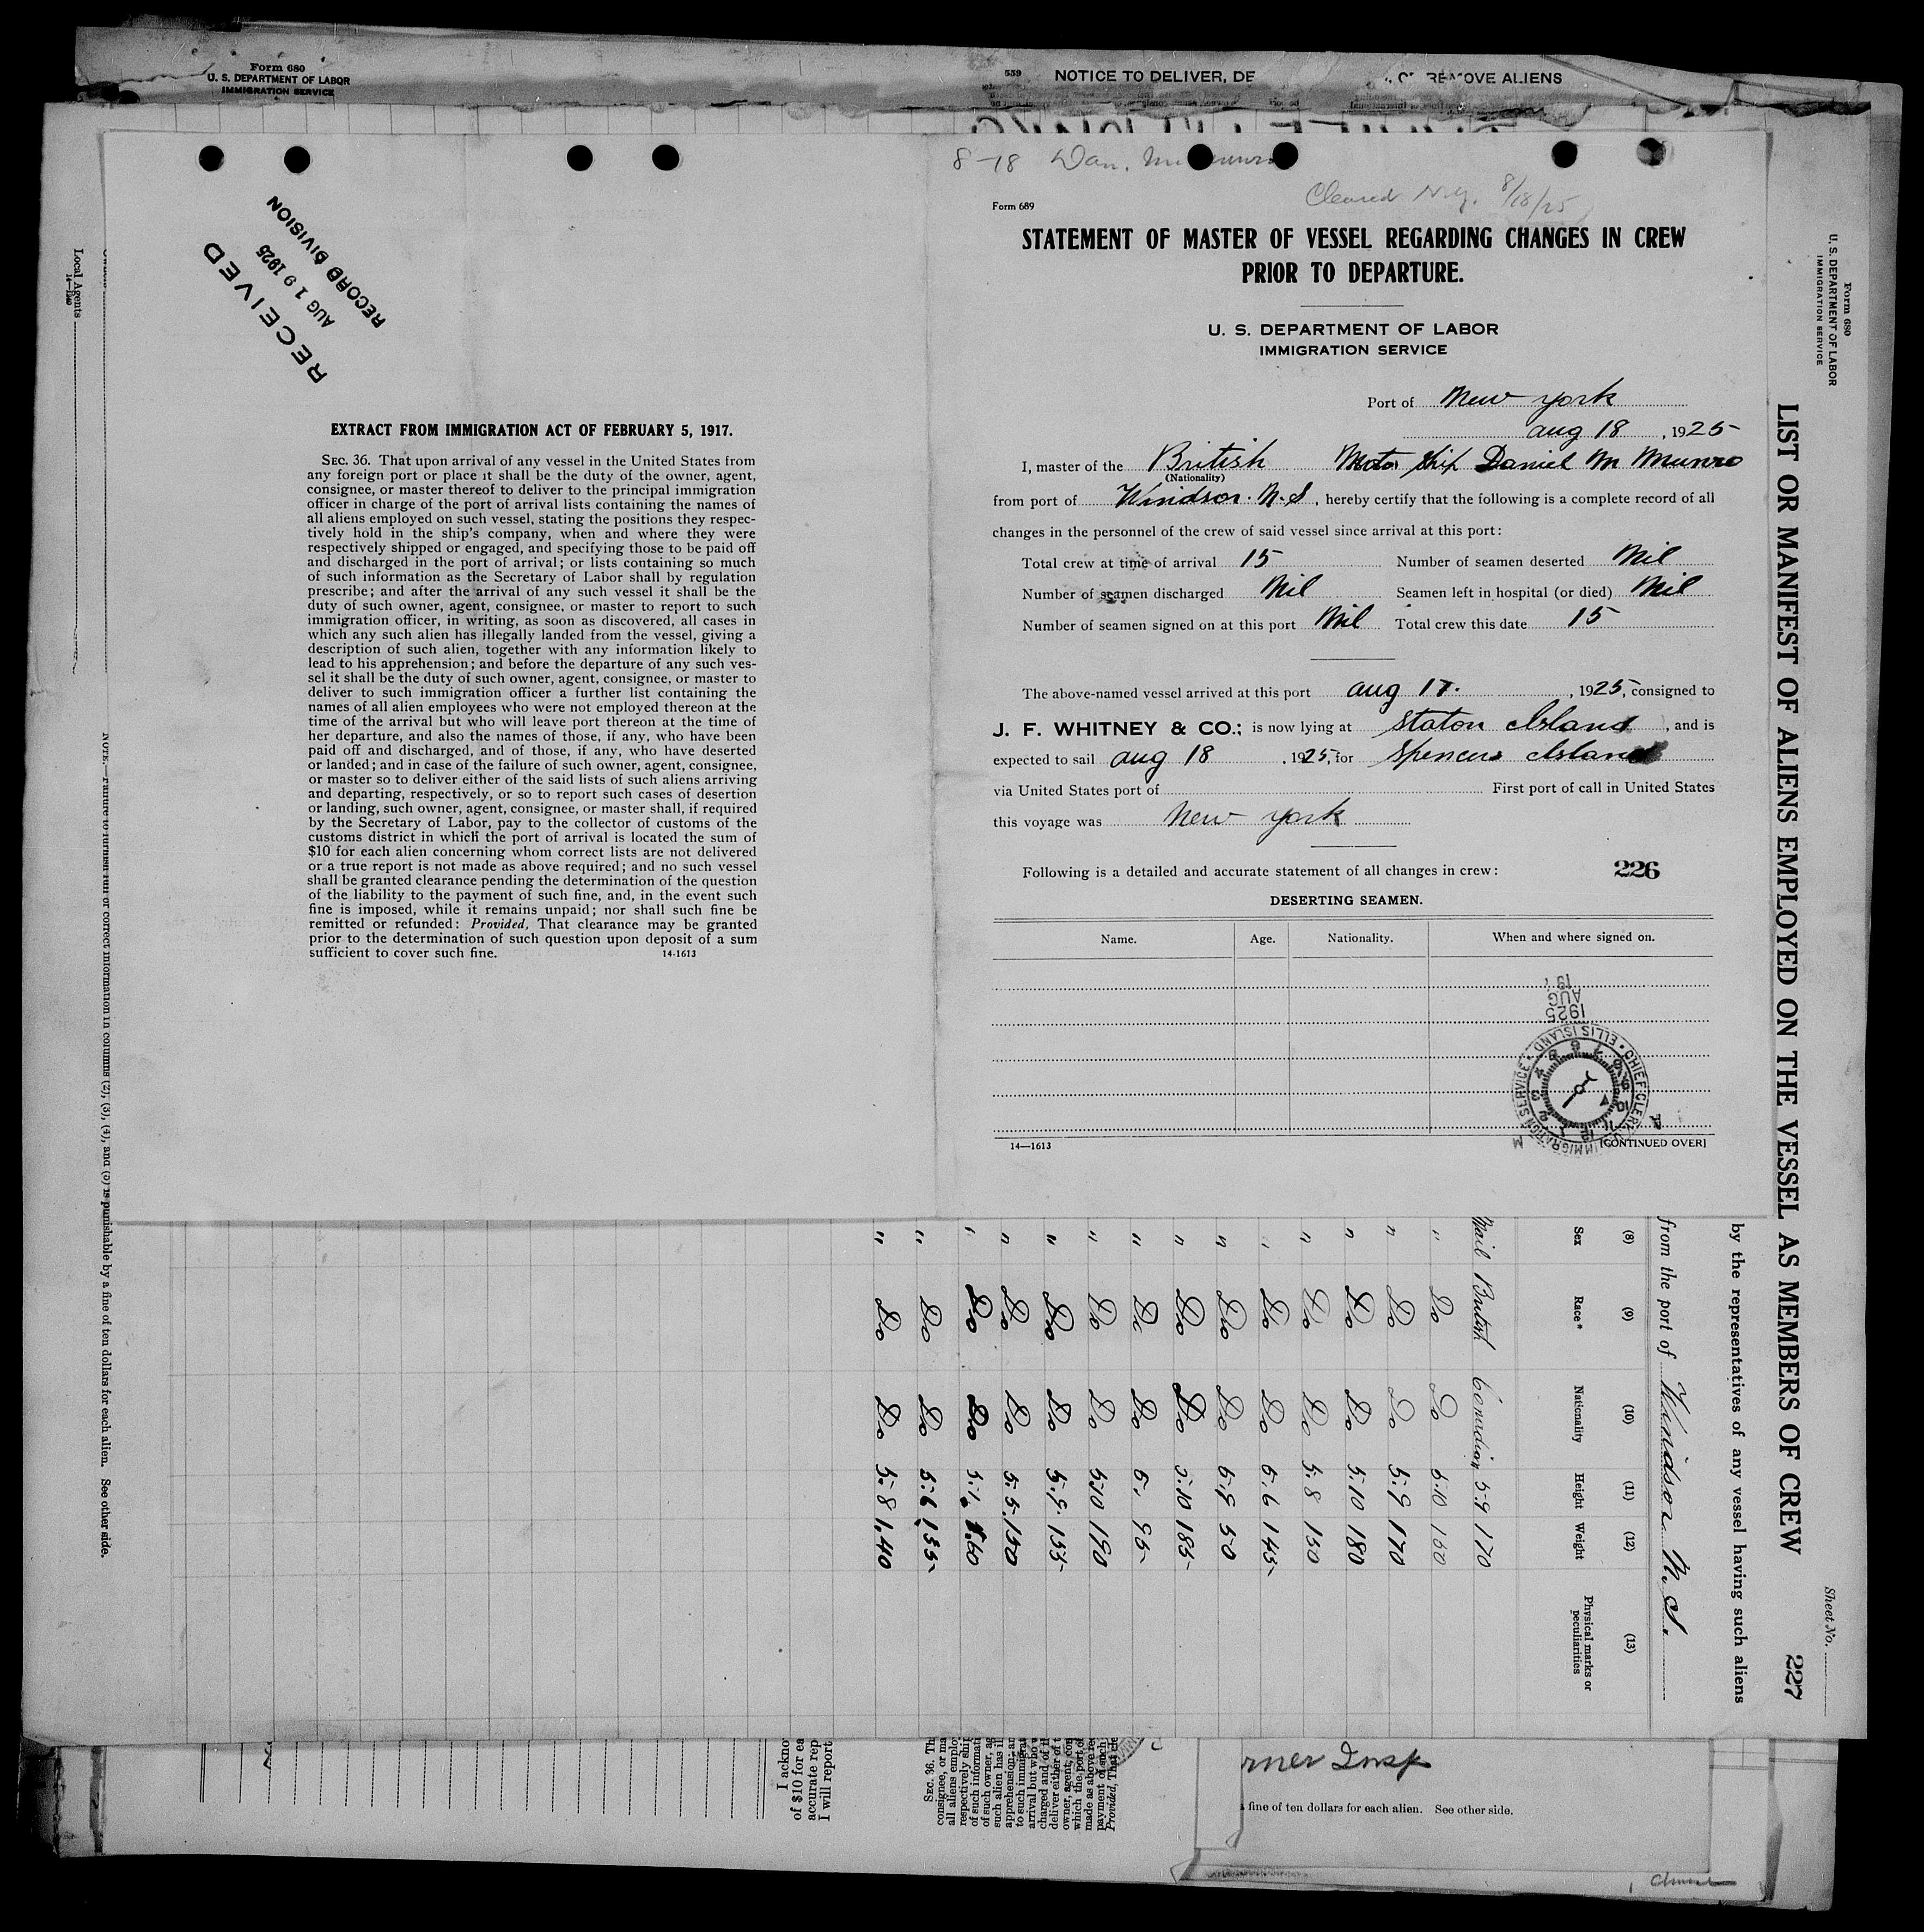 Form 680
U. S. DEPARTMENT OF LABOR
IMMIGRATION SERVICE
559 NOTICE TO DELIVER, DE
REMOVE ALIENS
RECEIVED
AUG 19 1925
RECORD DIVISION
EXTRACT FROM IMMIGRATION ACT OF FEBRUARY 5, 1917.
SEC. 36. That upon arrival of any vessel in the United States from
any foreign port or place it shall be the duty of the owner, agent,
consignee, or master thereof to deliver to the principal immigration
officer in charge of the port of arrival lists containing the names of
all aliens employed on such vessel, stating the positions they respec-
tively hold in the ship's company, when and where they were
respectively shipped or engaged, and specifying those to be paid off
and discharged in the port of arrival; or lists containing so much
of such information as the Secretary of Labor shall by regulation
prescribe; and after the arrival of any such vessel it shall be the
duty of such owner, agent, consignee, or master to report to such
immigration officer, in writing, as soon as discovered, all cases in
which any such alien has illegally landed from the vessel, giving a
description of such alien, together with any information likely to
lead to his apprehension; and before the departure of any such ves-
sel it shall be the duty of such owner, agent, consignee, or master to
deliver to such immigration officer a further list containing the
names of all alien employees who were not employed thereon at the
time of the arrival but who will leave port thereon at the time of
her departure, and also the names of those, if any, who have been
paid off and discharged, and of those, if any, who have deserted
or landed; and in case of the failure of such owner, agent, consignee,
or master so to deliver either of the said lists of such aliens arriving
and departing, respectively, or so to report such cases of desertion
or landing, such owner, agent, consignee, or master shall, if required
by the Secretary of Labor, pay to the collector of customs of the
customs district in which the port of arrival is located the sum of
$10 for each alien concerning whom correct lists are not delivered
or a true report is not made as above required; and no such vessel
shall be granted clearance pending the determination of the question
of the liability to the payment of such fine, and, in the event such
fine is imposed, while it remains unpaid; nor shall such fine be
remitted or refunded: Provided, That clearance may be granted
prior to the determination of such question upon deposit of a sum
sufficient to cover such fine. 14-1613
8-18 Dan. M.
Cleared N.Y. 8/18/25
Form 689
STATEMENT OF MASTER OF VESSEL REGARDING CHANGES IN CREW
PRIOR TO DEPARTURE.
U. S. DEPARTMENT OF LABOR
IMMIGRATION SERVICE
Port of New York
Aug 18, 1925
I, master of the British Motor Ship Daniel M Munro
(Nationality)
from port of Windsor. N.S, hereby certify that the following is a complete record of all
changes in the personnel of the crew of said vessel since arrival at this port:
Total crew at time of arrival 15 Number of seamen deserted Nil
Number of seamen discharged Nil Seamen left in hospital (or died) Nil
Number of seamen signed on at this port Nil Total crew this date 15
The above-named vessel arrived at this port Aug 17., 1925, consigned to
J. F. WHITNEY & CO.; is now lying at Staton Island, and is
expected to sail Aug 18, 1925, for Spencers Island
via United States port of First port of call in United States
this voyage was New York
Following is a detailed and accurate statement of all changes in crew: 226
DESERTING SEAMEN.
Name. Age. Nationality. When and where signed on.
1925
AUG
19
IMMIGRATION SERVICE • ELLIS ISLAND • CHIEF CLERK
14—1613 [CONTINUED OVER]
Form 680
U. S. DEPARTMENT OF LABOR
IMMIGRATION SERVICE
Sheet No.
LIST OR MANIFEST OF ALIENS EMPLOYED ON THE VESSEL AS MEMBERS OF CREW 227
by the representatives of any vessel having such aliens
from the port of Windsor N.S.
(8) (9) (10) (11) (12) (13)
Sex Race* Nationality Height Weight Physical marks or peculiarities
Mail British Canadian 5.9 170
" Do Do 5.10 160
" Do Do 5.9 170
" Do Do 5.10 180
" Do Do 5.8 150
" Do Do 5.6 145
" Do Do 5.9 50
" Do Do 5.10 185
" Do Do 5. 95
" Do Do 5.10 190
" Do Do 5.9. 155
" Do Do 5.5. 150
" Do Do 5.1. 160
" Do Do 5.6 135
" Do Do 5.8 140
Local Agents
NOTE.—Failure to furnish full or correct information in columns (2), (3), (4), and (5) is punishable by a fine of ten dollars for each alien. See other side.
I ackno
of $10 for ea
accurate rep
I will report
SEC. 36. Th
consignee, or ma
all aliens emplo
respectively ship
of such informati
of such owner, ag
such alien has il
apprehension; an
to such immigrat
arrival but who w
charged and of th
deliver either of t
owner, agent, con
which the port of
made as above re
payment of such
Provided, That cle
rner Insp
fine of ten dollars for each alien. See other side.